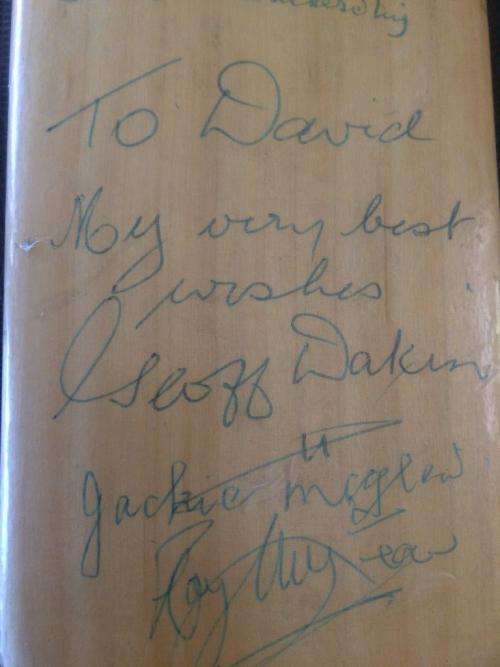 To David
My very best
wishes
Geoff Dakin
Jackie McGlew
Roy McLean